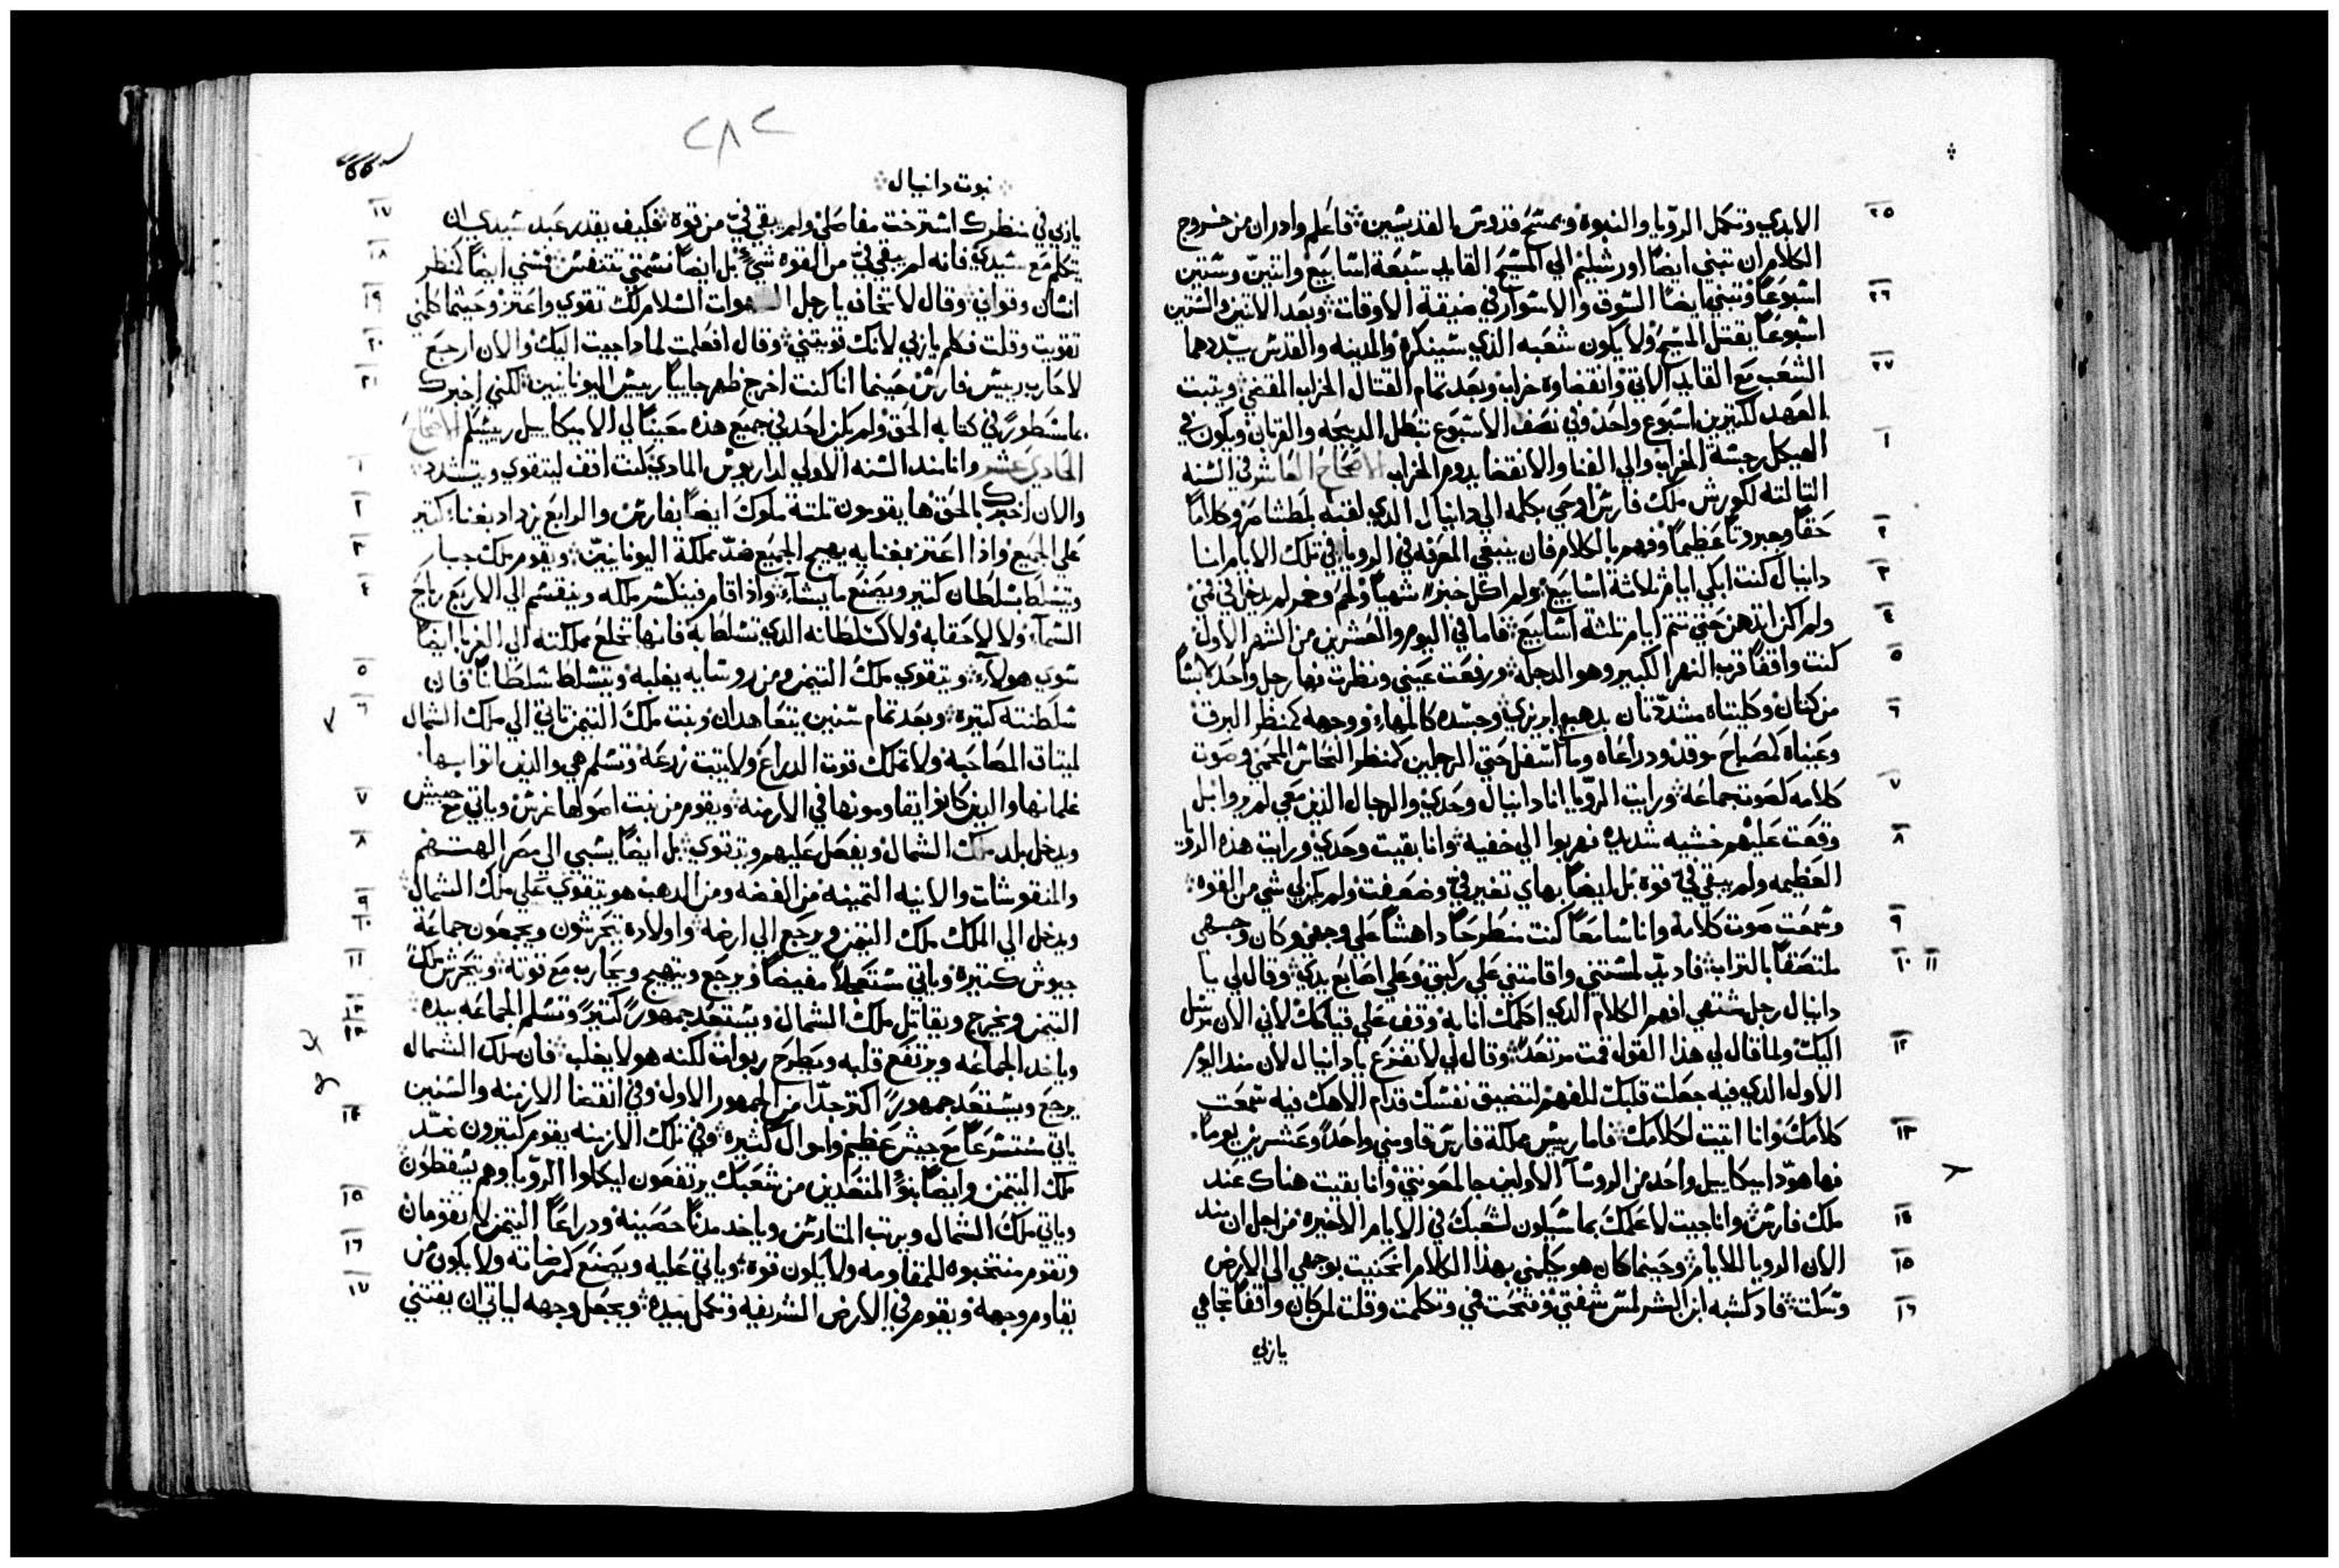 الابدي وتكمل الرويا والنبوة ويمسح قدوس القديسين فاعلم وادران من خروج
٢٥
الكلام ان تبني ايضاً اورشليم الي المسيح القايد سبعة اسابيع واتنين وستين
اسبوعاً وتبني ايضاً السوق والاسوار في ضيقة الاوقات وبعد الاتنين والستين
٢٦
اسبوعاً يقتل المسيح ولا يكون شعبه الذي سينكره والمدينه والقدس يبددهما
الشعب مع القايد الاتي وانقضاوه خراب وبعد تمام القتال الخراب المقضي ويتبت
٢٧
العهد لكتيرين اسبوع واحد وفي نصف الاسبوع تبطل الدبيحه والقربان ويكون في
الهيكل رجسة الخراب والي الفنا والانقضا يدوم الخراب الاصحاح العاشر في السنه
١
التالته لكورش ملك فارس اوحي بكلمه الي دانيال الدي لقبه بلطشاصر وكلاماً
حقاً وجبروتاً عظيماً وفهم بالكلام فان ينبغي المعرفه في الرويا في تلك الايام انا
٢
دانيال كنت ابكي ايام تلاتة اسابيع ولم اكل خبزاً شهياً ولحم وخمر لم يدخل في فمي
٣
ولم اكن ادهن حتي تتم ايام تلتة اسابيع فاما في اليوم والعشرين من الشهر الاول
٤
كنت واقفاً قرب النهر الكبير وهو الدجله ورفعت عيني ونظرت فها رجل واحد لابساً
٥
من كتان وكليتاه مشدّدتان بدهب ابريزي وجسده كالمهاء ووجهه كمنظر البرق
٦
وعيناه كمصباح موقد ودراعاه وما اسفل حتي الرجلين كمنظر النحاس المحمي وصوت
كلامه كصوت جماعه ورايت الرويا انا دانيال وحدي والرجال الذين معي لم يروا بل
٧
وقعت عليهم خشيه شديده فهربوا الي خفيه وانا بقيت وحدي ورايت هذه الرويا
٨
العظيمه ولم يبقي فيّ قوة بل ايضاً بهاي تغير فيّ وضعفت ولم يكن لي شي من القوه
وسمعت صوت كلامه وانا سامعاً كنت منطرحاً داهشاً علي وجهي وكان وجهي
٩
ملتصقاً بالتراب فاد يدّ لمستني واقامتني علي ركبتيّ وعلي اصابع يدي وقال لي يا
١٠ ١١
دانيال رجل شتهي افهم الكلام الدي اكلمك انا به وقف علي قيامك لاني الان مرسل
اليك ولما قال لي هذا القول قمت مرتعداً وقال لي لا تفزع يا دانيال لان مند اليوم
١٢
الاول الدي فيه جعلت قلبك للفهم لتضيق نفسك قدام الاهك فيه سمعت
كلامك وانا اتيت لكلامك فاما رييس مملكة فارس قاومني واحداً وعشرين يوماً
١٣
فها هودا ميكاييل واحد من الروسآ الاولين جا لمعونتي وانا بقيت هناك عند
ملك فارس وانا جيت لاعلمك بما سيكون لشعبك في الايام الاخيره من اجل ان مند
١٤
الان الرويا للايام وحينما كان هو يكلمني بهذا الكلام انحنيت بوجهي الي الارض
١٥
وسكت فاد كشبه ابن البشر لمس شفتي وفتحت فمي وتكلمت وقلت لمن كان واقفاً تجاهي
١٦
يا زبي
٢٨٢
نبوت دانيال
يازبي في منظرك استرخت مفاصلي ولم يبقي فيّ من قوة فكيف يقدر عبد سيدي ان
١٧
يتكلم مع سيدي فانه لم يبقي فيّ من القوه شي بل ايضاً نسمتي تتنفس فمسني ايضاً كمنظر
١٨
انسان وقواني وقال لا تخاف يا رجل الشهوات السلام لك تقوي واعتز وحينما كلمني
١٩
تقويت وقلت فكلم يازبي لانك قويتني وقال افعلمت لماداجيت اليك والان ارجع
٢٠
لاحارب رييس فارس حينما انا كنت اخرج ظهر جاييا رييس اليونانيين لكني اخبرك
٢١
ماسطور في كتابه الحق ولم يكن احد في جميع هذه معيناً لي الا ميكاييل رييسكم الاصحاح
الحادي عشر وانا مند السنه الاولي لداريوس المادي كنت اقف ليتقوي ويتشدد
١
والان اخبرك بالحق ها يقومون تلتة ملوك ايضاً بفارس والرابع يزداد بغناء كتير
٢
علي الجميع واذا اعتز بغنايه يهيج الجميع ضدّ مملكة اليونانيين ويقوم ملك جبار
٣
ويتسلط سلطان كتير ويصنع ما يشآء واذا قام فينكسر ملكه وينقسم الي الاربع رياح
٤
السمآء ولا لاحقابه ولا كسلطانه الدي تسلط به فانها تخلع مملكته الي الغربا ايضاً
سوي هولآء ويتقوي ملك التيمن ومن روسايه يغلبه ويتسلط سلطاناً فان
٥
سلطنته كتيره وبعد تمام سنين يتعاهدان وبنت ملك التيمن تاتي الي ملك الشمال
٦
لميتاق المصاحبه ولا تملك قوت الدراع ولا يتبت زرعه وتسلم هي والدين اتوا بها
غلمانها والدين كانوا يقاومونها في الازمنه ويقوم من نبت اصولها غرس وياتي مع جيش
٧
ويدخل بلد ملك الشمال ويفصل عليهم ويتقوي بل ايضاً يسبي الي مصر الهتهم
٨
والمنقوشات والانيه التمينه من الفضه ومن الدهب هو يتقوي علي ملك الشمال
ويدخل الي الملك ملك التيمن ويرجع الي ارضه واولاده يتحرشون ويجمعون جماعة
٩
١٠
جيوش كتيرة وياتي مستعجلاً مفيضاً ويرجع ويتهيج ويحارب مع قوته ويتحرش ملك
١١
التيمن ويخرج ويقاتل ملك الشمال ويستعد جمهوراً كتيراً وتسلم الجماعه بيده
وياخد الجماعه ويرتفع قلبه ويطرح ربوات لكنه هو لا يغلب فان ملك الشمال
١٢
١٣
يرجع ويستعد جمهوراً اكتر جدّاً من الجمهور الاول وفي انقضا الازمنه والسنين
ياتي مستسرعاً مع جيش عظيم واموال كثيرة وفي تلك الازمنه يقوم كتيرون ضدّ
١٤
ملك التيمن وايضاً بنو المتعدين من شعبك يرتفعون ليكلوا الرويا وهم يسقطون
وياتي ملك الشمال ويرتب المتارس وياخد مدناً حصينة ودراعاً التيمن لا تقومان
١٥
وتقوم منتخبوه للمقاومه ولا يكون قوة وياتي عليه ويصنع كمرضاته ولا يكون من
١٦
يقاوم وجهه ويقوم في الارض الشريفه وتكمل بيده ويجعل وجهه لياتي ان يفتني
١٧